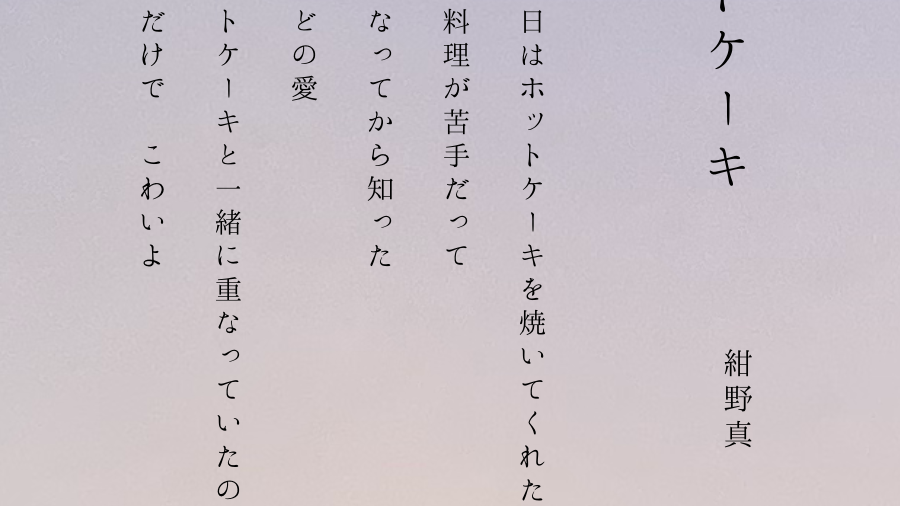 トケーキ
紺野真
日はホットケーキを焼いてくれた
料理が苦手だって
なってから知った
どの愛
トケーキと一緒に重なっていたの
だけで　こわいよ